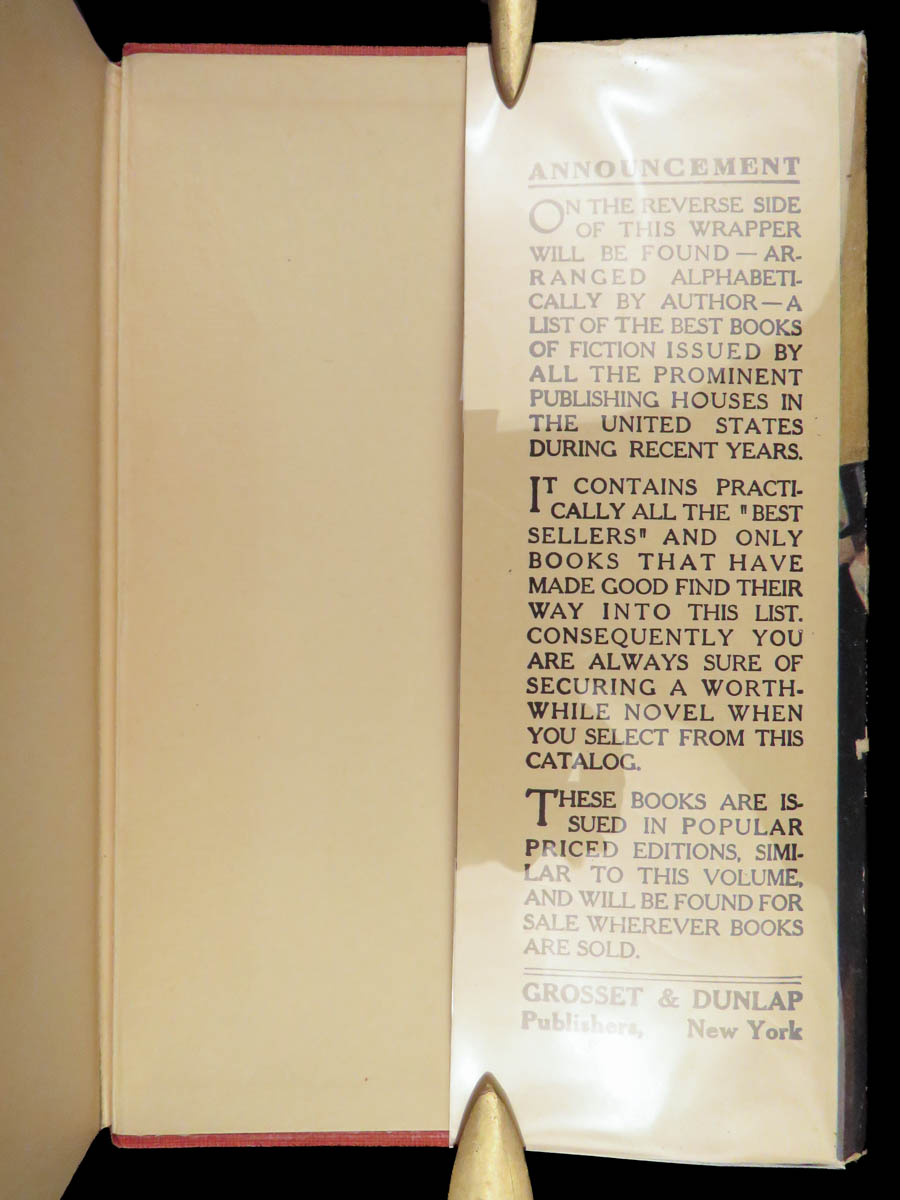 ANNOUNCEMENT
ON THE REVERSE SIDE
OF THIS WRAPPER
WILL BE FOUND — AR-
RANGED ALPHABETI-
CALLY BY AUTHOR — A
LIST OF THE BEST BOOKS
OF FICTION ISSUED BY
ALL THE PROMINENT
PUBLISHING HOUSES IN
THE UNITED STATES
DURING RECENT YEARS.
IT CONTAINS PRACTI-
CALLY ALL THE "BEST
SELLERS" AND ONLY
BOOKS THAT HAVE
MADE GOOD FIND THEIR
WAY INTO THIS LIST.
CONSEQUENTLY YOU
ARE ALWAYS SURE OF
SECURING A WORTH-
WHILE NOVEL WHEN
YOU SELECT FROM THIS
CATALOG.
THESE BOOKS ARE IS-
SUED IN POPULAR
PRICED EDITIONS, SIMI-
LAR TO THIS VOLUME,
AND WILL BE FOUND FOR
SALE WHEREVER BOOKS
ARE SOLD.
GROSSET & DUNLAP
Publishers, New York